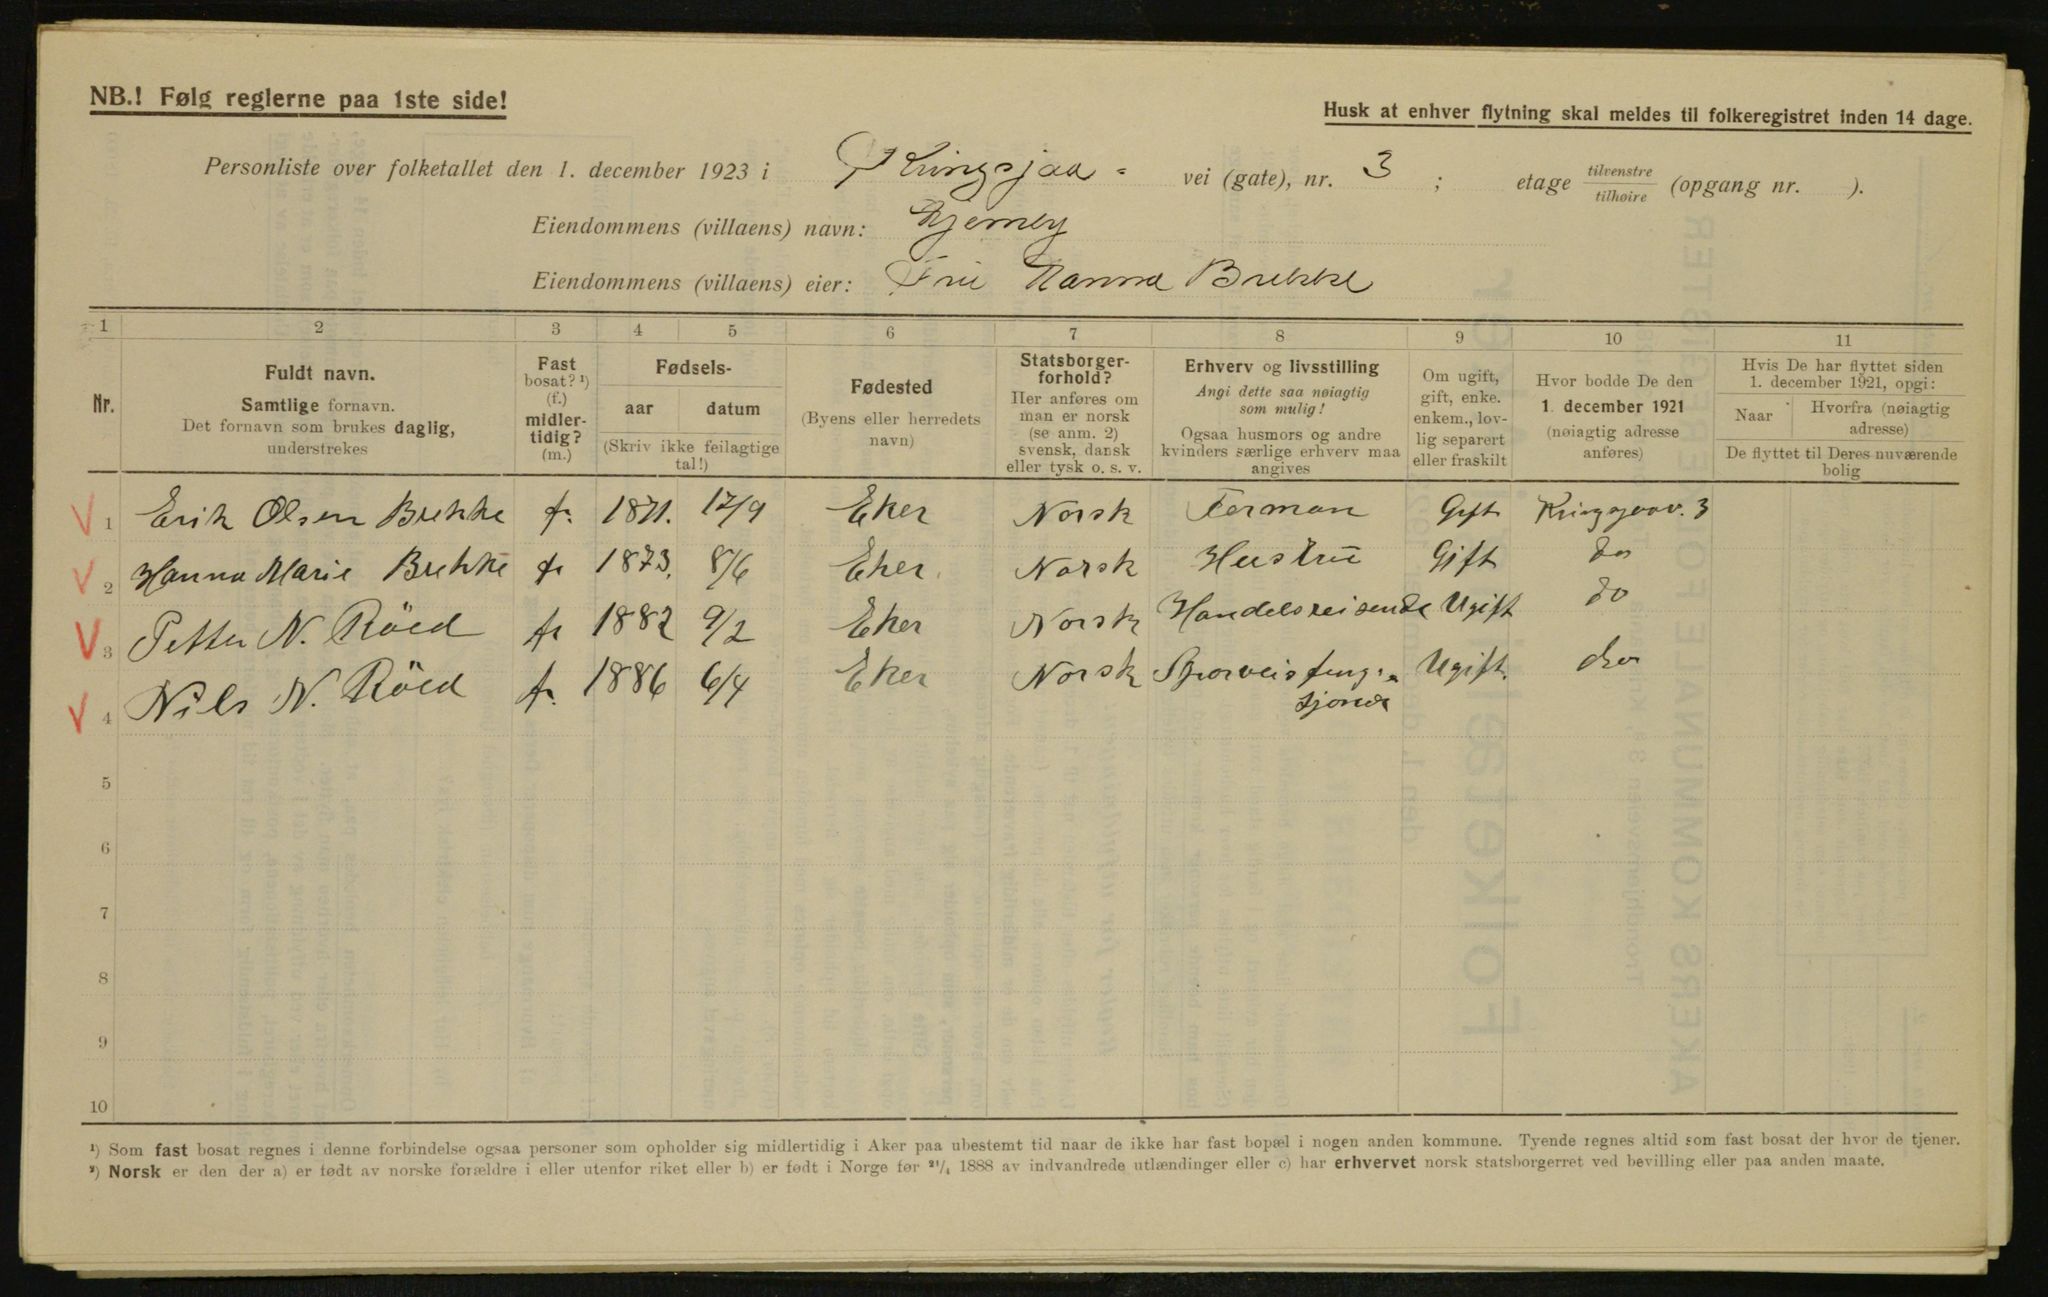 NB.! Følg reglerne paa 1ste side!
Husk at enhver flytning skal meldes til folkeregistret inden 14 dage.
Personliste over folketallet den 1. december 1923 i Kringsjaa- vei (gate), nr. 3 ; etage tilvenstre / tilhøire (opgang nr. ).
Eiendommens (villaens) navn:
Eiendommens (villaens) eier: Frue Hanna Brekke
1 2 3 4 5 6 7 8 9 10 11
Nr.
Fuldt navn.
Samtlige fornavn.
Det fornavn som brukes daglig,
understrekes
Fast
bosat? ¹)
(f.)
midler-
tidig?
(m.)
Fødsels-
aar datum
(Skriv ikke feilagtige
tal!)
Fødested
(Byens eller herredets
navn)
Statsborger-
forhold?
Her anføres om
man er norsk
(se anm. 2)
svensk, dansk
eller tysk o. s. v.
Erhverv og livsstilling
Angi dette saa nøiagtig
som mulig!
Ogsaa husmors og andre
kvinders særlige erhverv maa
angives
Om ugift,
gift, enke.
enkem., lov-
lig separert
eller fraskilt
Hvor bodde De den
1. december 1921
(nøiagtig adresse
anføres)
Hvis De har flyttet siden
1. december 1921, opgi:
Naar Hvorfra (nøiagtig
adresse)
De flyttet til Deres nuværende
bolig
1 Erik Olsen Brekke f. 1871. 17/9 Eker Norsk Formann Gift Kringsjaav. 3
2 Hanna Marie Brekke f 1873. 8/6 Eker Norsk Hustru Gift do
3 Petter N. Röed f 1882 9/2 Eker Norsk Handelsreisende Ugift do
4 Nils N. Röed f. 1886 6/4 Eker Norsk Sporveisfung- Ugift. do
5
6
7
8
9
10
¹) Som fast bosat regnes i denne forbindelse ogsaa personer som opholder sig midlertidig i Aker paa ubestemt tid naar de ikke har fast bopæl i nogen anden kommune. Tyende regnes altid som fast bosat der hvor de tjener.
²) Norsk er den der a) er født av norske forældre i eller utenfor riket eller b) er født i Norge før ²¹/₄ 1888 av indvandrede utlændinger eller c) har erhvervet norsk statsborgerret ved bevilling eller paa anden maate.